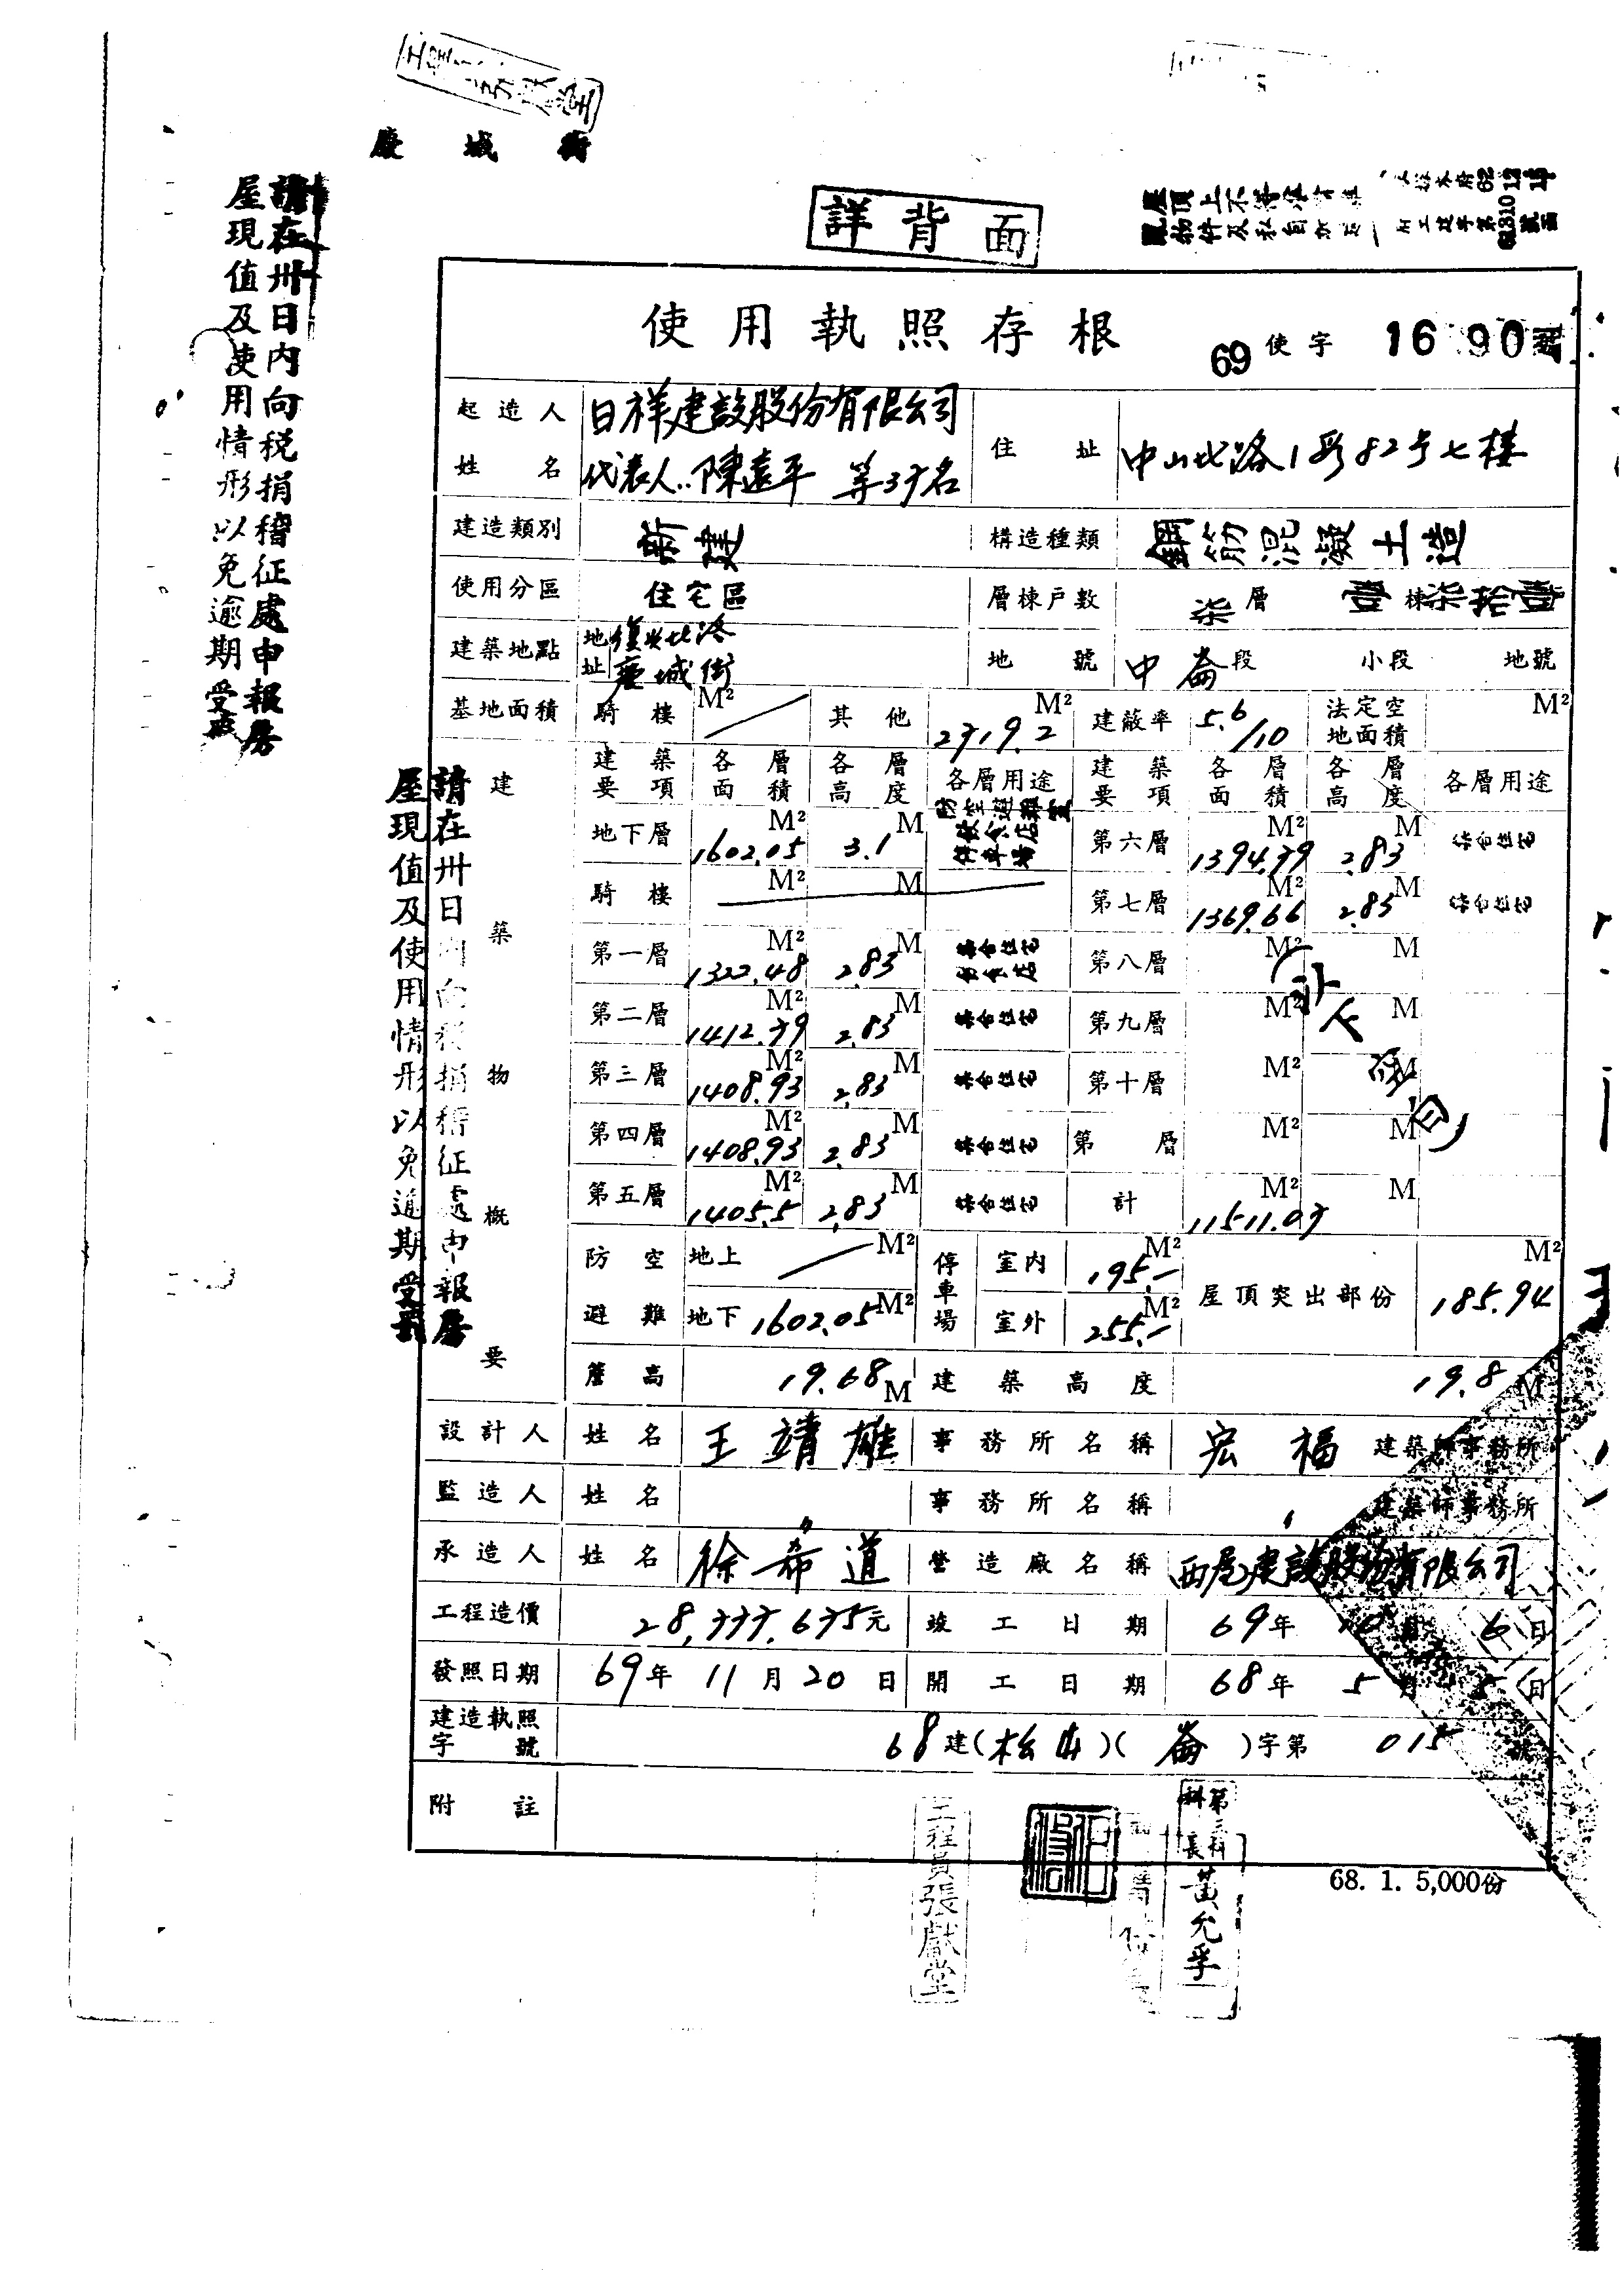 慶城街
詳背面
請在卅日內向稅捐稽征處申報房
屋現值及使用情形以免逾期受
使用執照存根
69使字 1690號
起造人姓名 日祥建設股份有限公司
代表人..陳遠平
住址 中山北路1段82号七樓
建造類別 新建 構造種類 鋼筋混凝土造
使用分區 住宅區 層棟戶數 柒層 壹棟柒拾壹
建築地點 地址 復興北路
慶城街
地號 中崙段 小段 地號
基地面積 騎樓 M² 其他 2719.2 M² 建蔽率 5.6/10 法定空地面積 M²
建築物概要
建築要項 各層面積 各層高度 各層用途 建築要項 各層面積 各層高度 各層用途
地下層 1602.05 M² 3.1 M 防空避難室
停車場
第六層 1394.79 M² 2.83 M 集合住宅
騎樓 M² M 第七層 1369.66 M² 2.83 M 集合住宅
第一層 1322.48 M² 2.83 M 集合住宅
第八層 M² M
第二層 1412.79 M² 2.83 M 集合住宅 第九層 M² M
第三層 1408.93 M² 2.83 M 集合住宅 第十層 M² M
第四層 1408.93 M² 2.83 M 集合住宅 第 層 M² M
第五層 1405.5 M² 2.83 M 集合住宅 計 11511.07 M² M
(以下空白)
防空避難 地上 M² 停車場 室內 195.- M² 屋頂突出部份 185.94 M²
地下 1602.05 M² 室外 255.- M²
簷高 19.68 M 建築高度 19.8 M
設計人 姓名 王靖雄 事務所名稱 宏福 建築師事務所
監造人 姓名 〃 事務所名稱 〃 建築師事務所
承造人 姓名 徐希道 營造廠名稱 西尾建設股份有限公司
工程造價 28,777,675元 竣工日期 69年 10月 6日
發照日期 69年 11月 20日 開工日期 68年 5月 5日
建造執照字號 68建(松山)(崙)字第 015 號
附註
68. 1. 5,000份
請在卅日內向稅捐稽征處申報房
屋現值及使用情形以免逾期受
工程員張獻堂
第三科
科長黃允孚